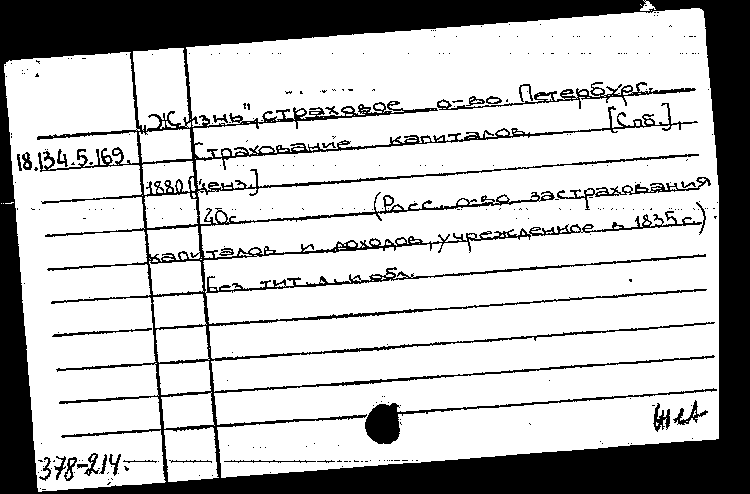 „Жизнь", страховое о-во. Петербург.
18.134.5.169. Страхование капиталов. [Спб.],
1880 [ценз.]
40с (Росс. о-во застрахования
капиталов и доходов, учрежденное в 1835 г.)
Без тит. л. и обл.
378-214.